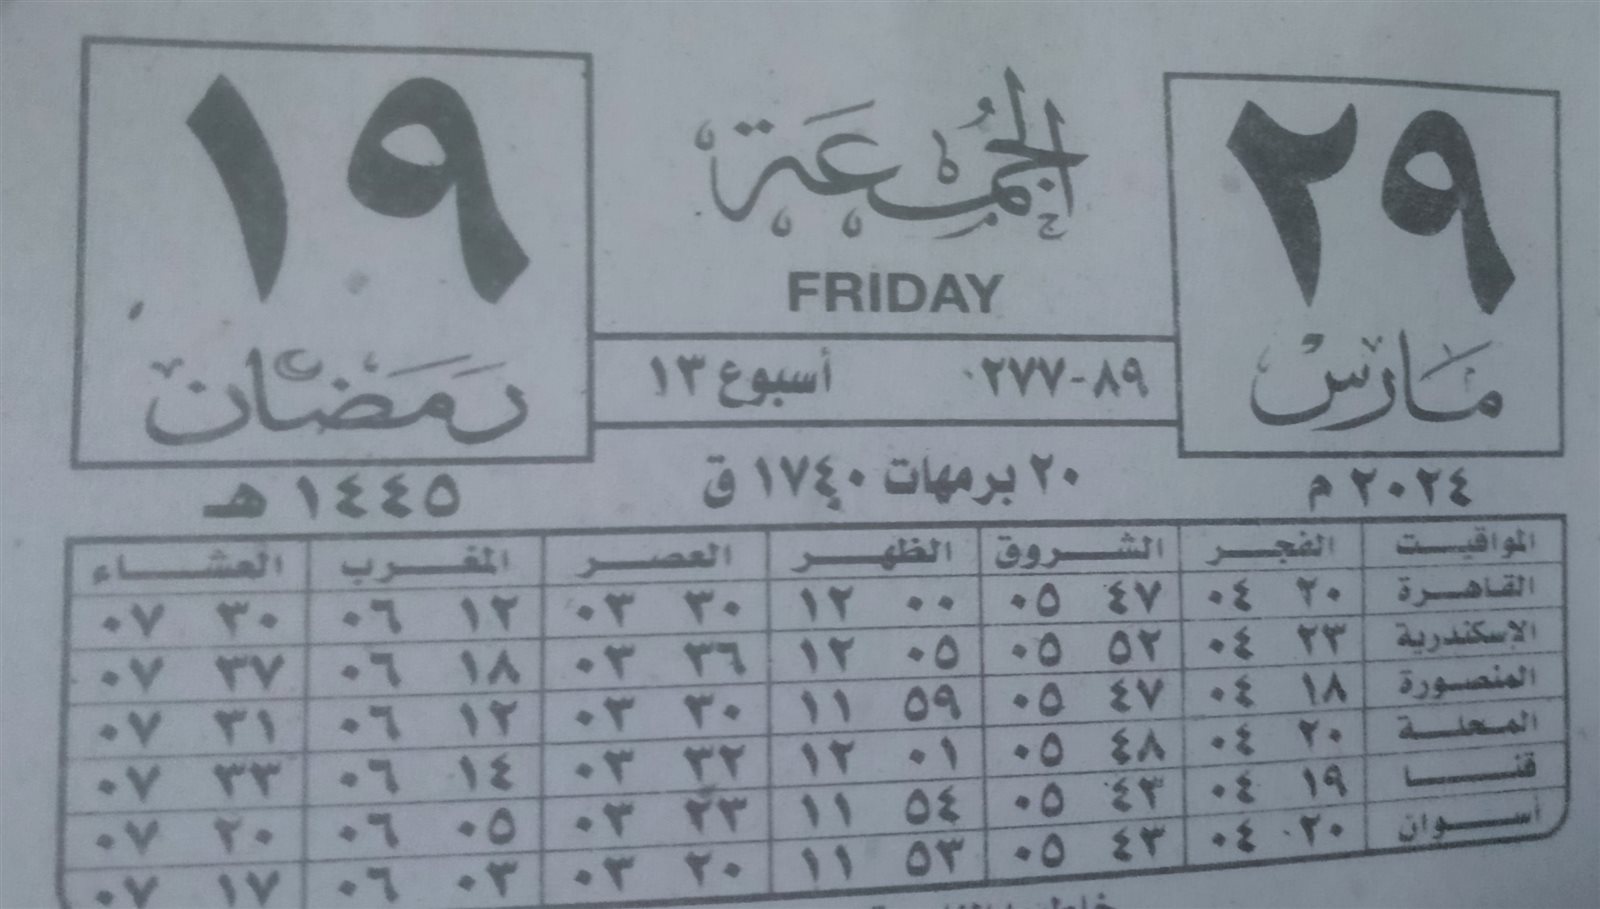 ٢٩
مارس
٢٠٢٤ م
الجُمعَة
FRIDAY
٨٩-٢٧٧ أسبوع ١٣
٢٠ برمهات ١٧٤٠ ق
١٩
رَمَضَان
١٤٤٥ هـ
المواقيت الفجر الشروق الظهر العصر المغرب العشاء
القاهرة ٢٠ ٠٤ ٤٧ ٠٥ ٠٠ ١٢ ٣٠ ٠٣ ١٢ ٠٦ ٣٠ ٠٧
الإسكندرية ٢٣ ٠٤ ٥٢ ٠٥ ٠٥ ١٢ ٣٦ ٠٣ ١٨ ٠٦ ٣٧ ٠٧
المنصورة ١٨ ٠٤ ٤٧ ٠٥ ٥٩ ١١ ٣٠ ٠٣ ١٢ ٠٦ ٣١ ٠٧
المحلة ٢٠ ٠٤ ٤٨ ٠٥ ٠١ ١٢ ٣٢ ٠٣ ١٤ ٠٦ ٣٣ ٠٧
قنا ١٩ ٠٤ ٤٣ ٠٥ ٥٤ ١١ ٢٣ ٠٣ ٠٥ ٠٦ ٢٠ ٠٧
أسوان ٢٠ ٠٤ ٤٣ ٠٥ ٥٣ ١١ ٢٠ ٠٣ ٠٣ ٠٦ ١٧ ٠٧